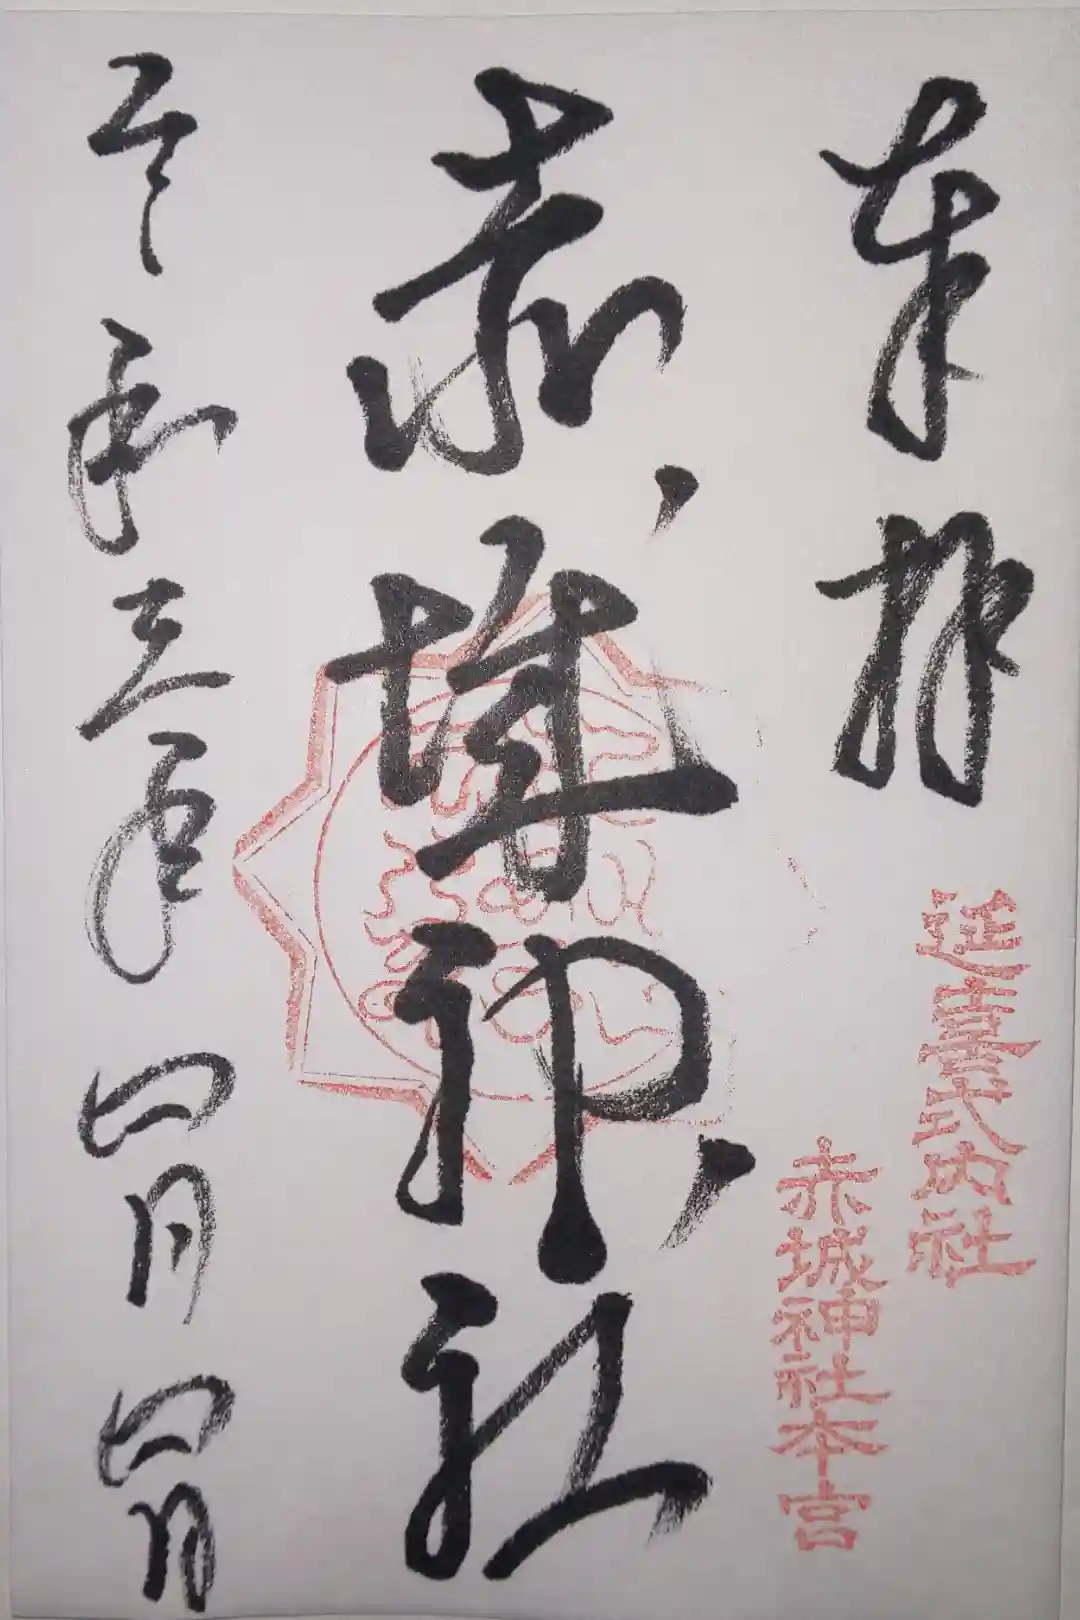 奉拝
延喜式内社
赤城神社本宮
赤城神社
令和三年四月四日